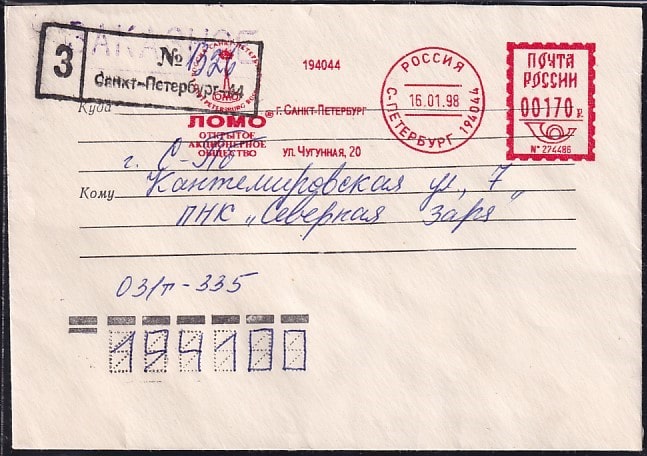 ЗАКАЗНОЕ
З
№ 1326
Санкт-Петербург-44
САНКТ-ПЕТЕРБУРГ
ЛОМО
ST.PETERSBURG
194044
ЛОМО® г. САНКТ-ПЕТЕРБУРГ
ОТКРЫТОЕ
АКЦИОНЕРНОЕ
ОБЩЕСТВО
УЛ. ЧУГУННАЯ, 20
РОССИЯ
16.01.98
С-ПЕТЕРБУРГ 194044
ПОЧТА
РОССИИ
00170 р.
№ 274486
Куда
г. С-Пб
Кантемировская ул, 7
Кому
ПНК „Северная Заря"
03/т-335
194100